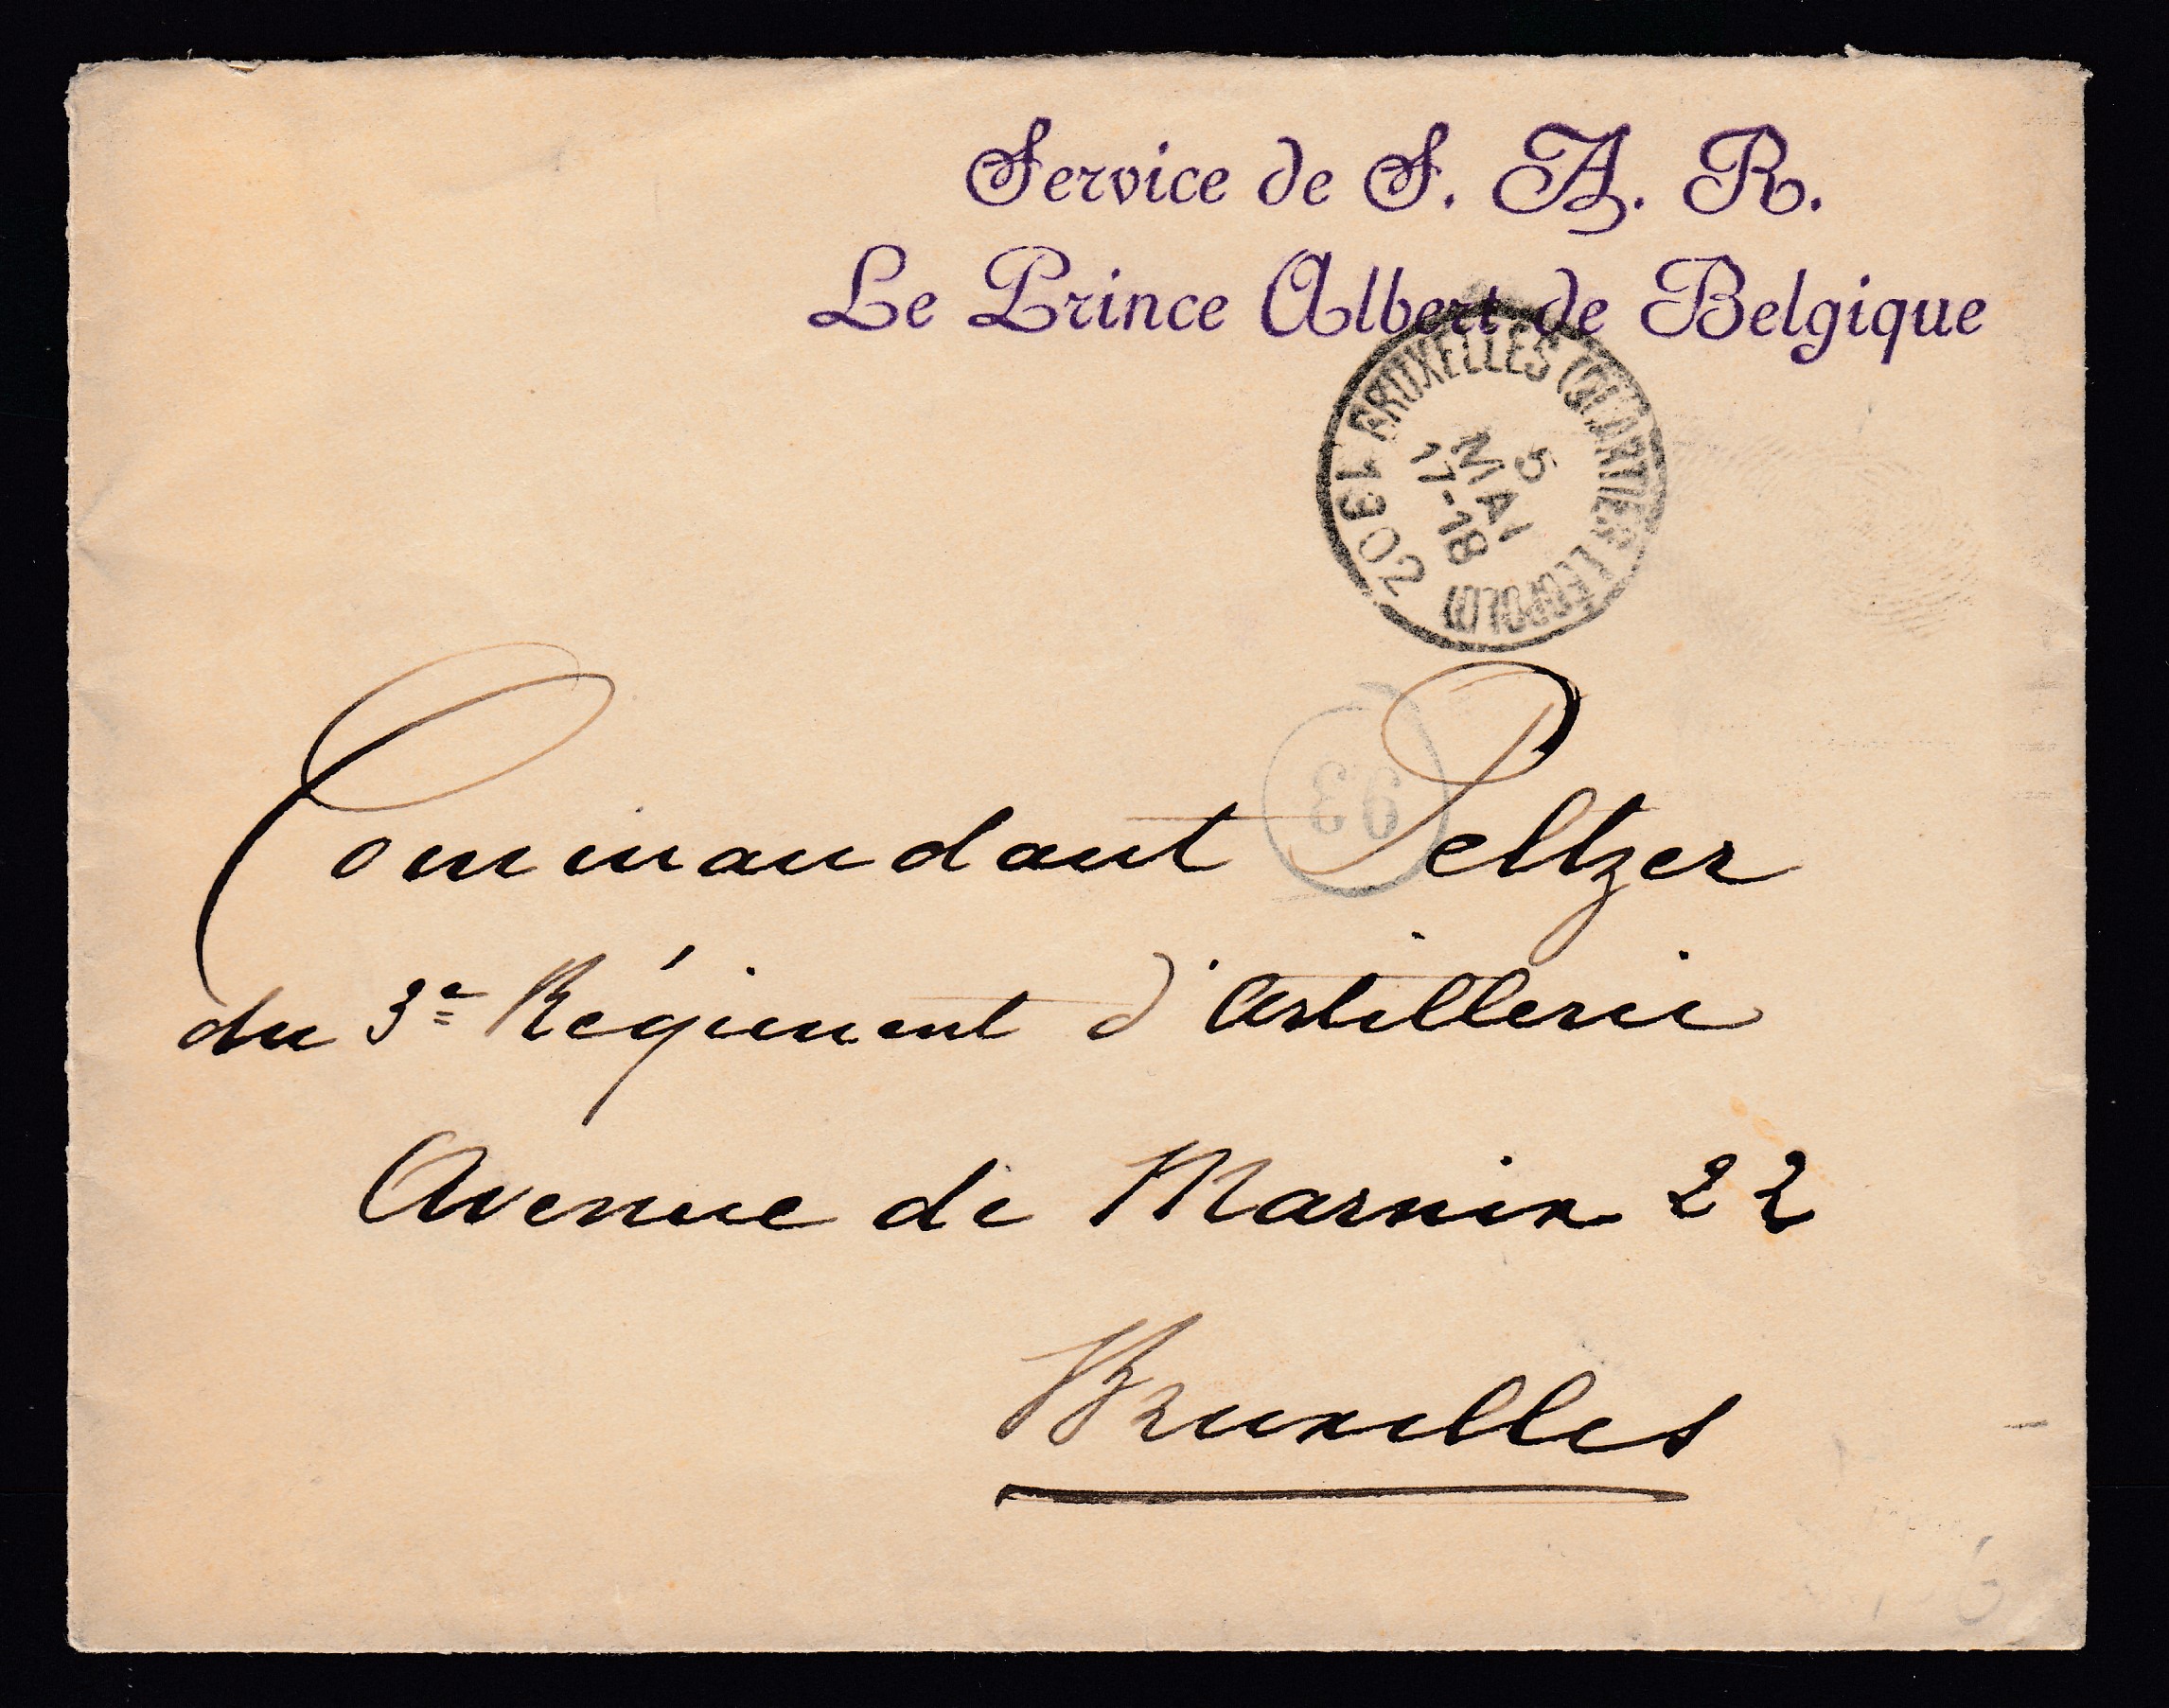 Service de S. A. R.
Le Prince Albert de Belgique
BRUXELLES (QUARTIER LÉOPOLD)
5
MAI
17-18
1902
93
Commandant Peltzer
du 3e Régiment d'Artillerie
Avenue de Marnix 22
Bruxelles